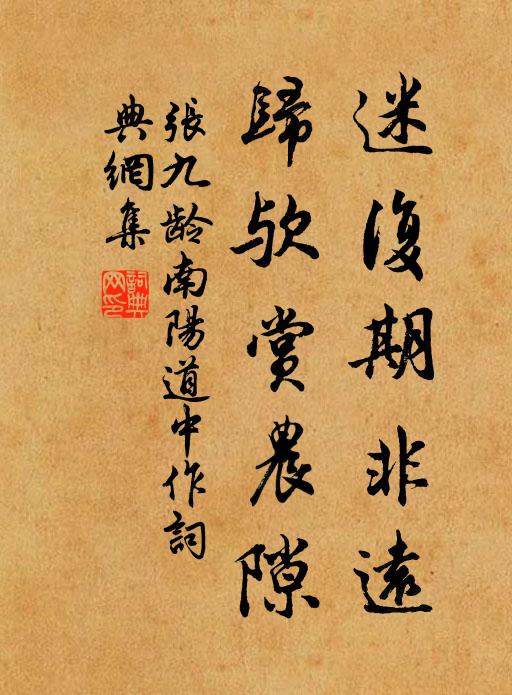 迷復期非遠
歸欤賞農隙
張九龄南陽道中作詞
典網集
詞典網印